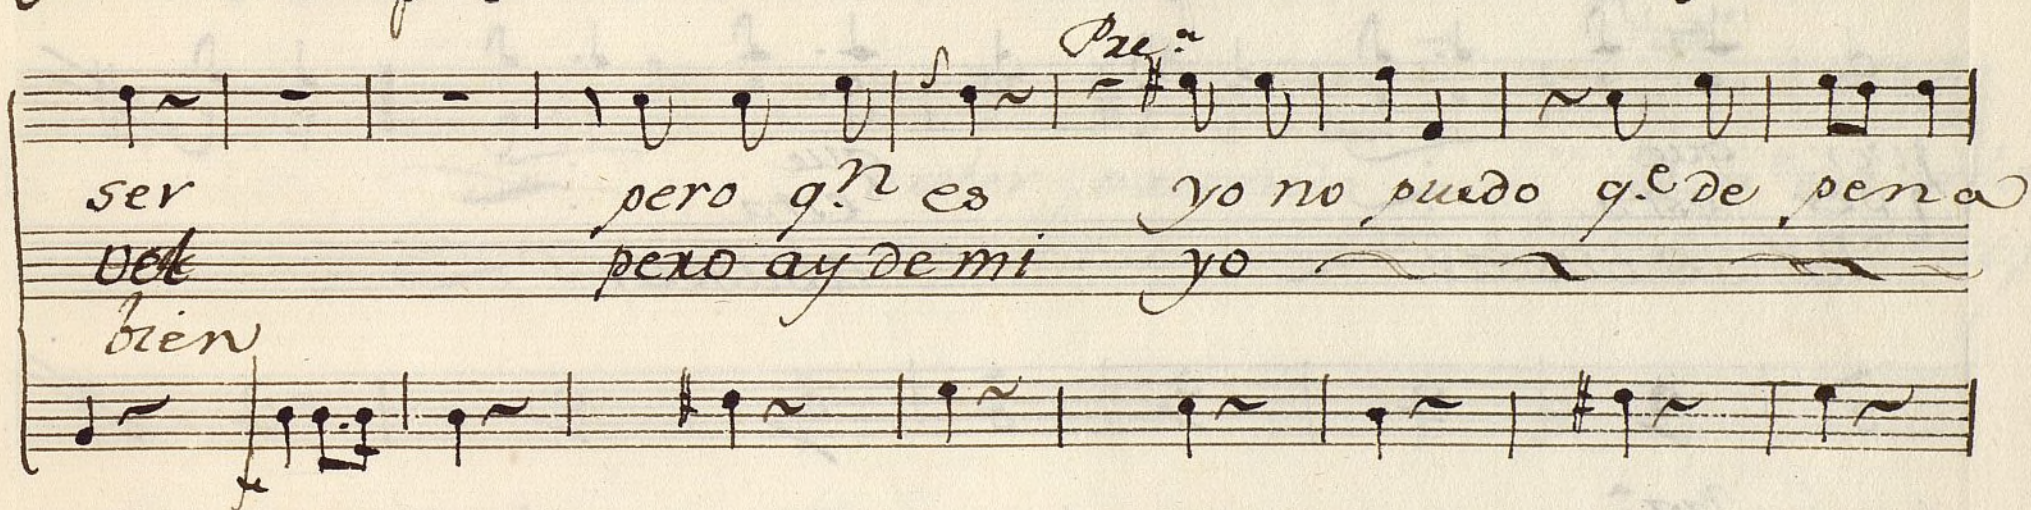 Pre.ª
ser pero q.n es yo no puedo q.e de pena
pero ay de mi yo
bien
f